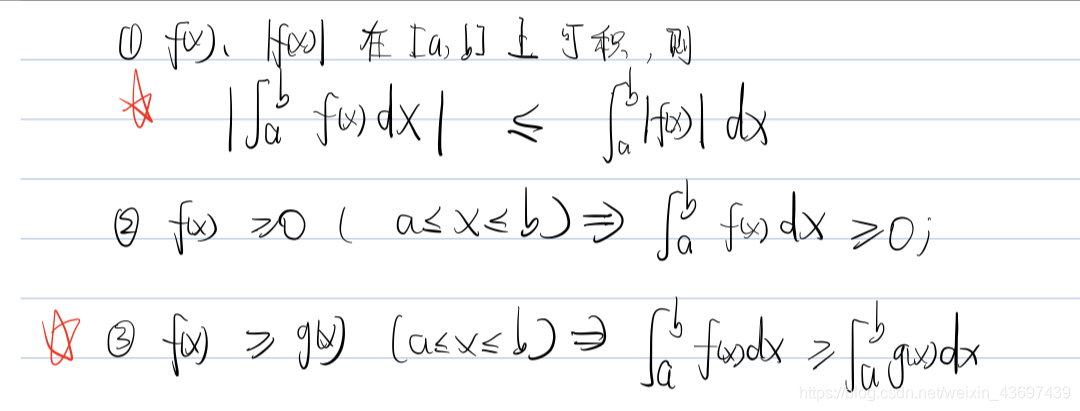 ① f(x)、|f(x)| 在 [a, b] 上可积，则
|∫_a^b f(x) dx| ≤ ∫_a^b |f(x)| dx
② f(x) ≥0 ( a≤x≤b) ⇒ ∫_a^b f(x) dx ≥0;
③ f(x) ≥ g(x) (a≤x≤b) ⇒ ∫_a^b f(x)dx ≥ ∫_a^b g(x)dx
https://blog.csdn.net/weixin_43697439